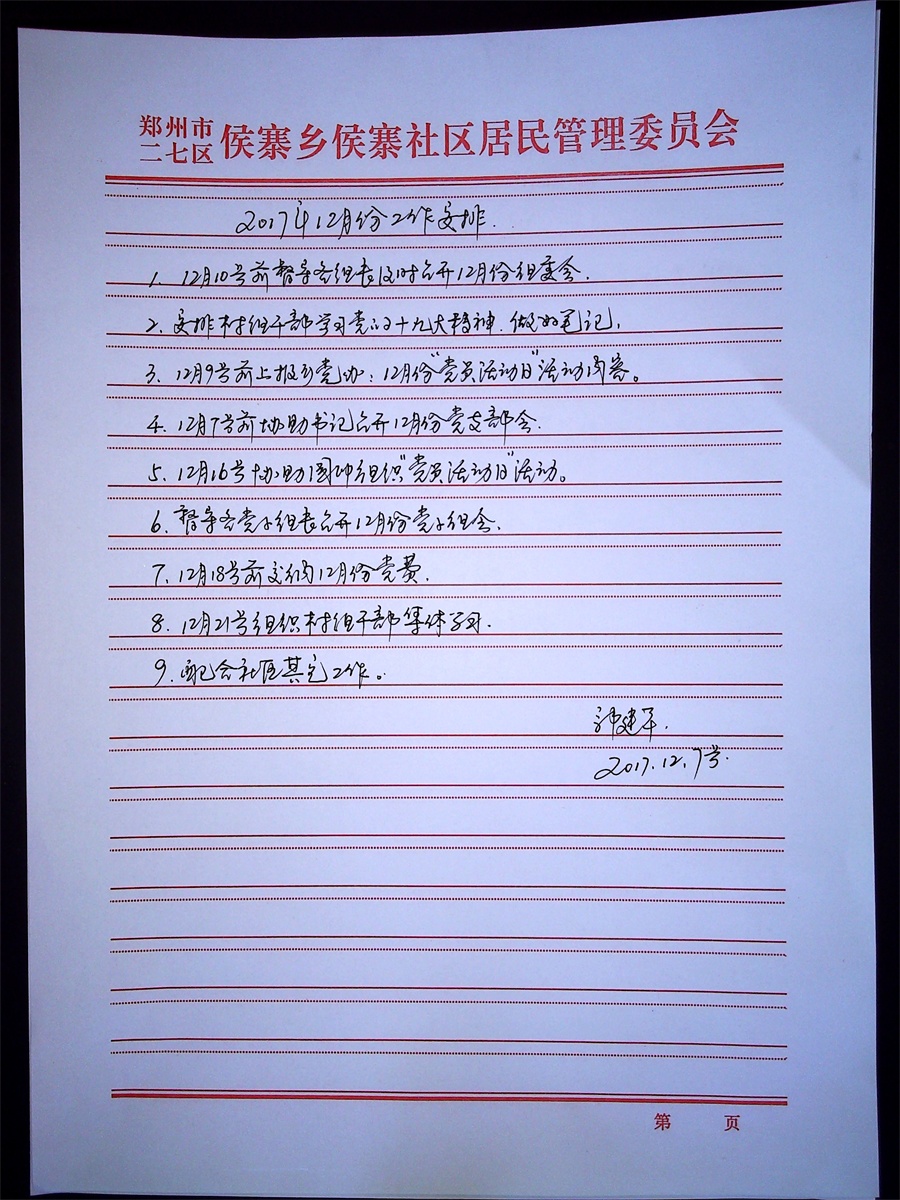 郑州市
二七区
侯寨乡侯寨社区居民管理委员会
2017年12月份工作安排.
1. 12月10号前督导各组长及时召开12月份组委会.
2. 安排村组干部学习党的十九大精神.做好笔记.
3. 12月9号前上报乡党办：12月份“党员活动日”活动内容。
4. 12月7号前协助书记召开12月份党支部会.
5. 12月16号协助国冲组织“党员活动日”活动。
6. 督导各党小组长召开12月份党小组会.
7. 12月18号前交纳12月份党费.
8. 12月21号组织村组干部集体学习.
9. 配合社区其它工作。
建军.
2017.12.7号.
第 页